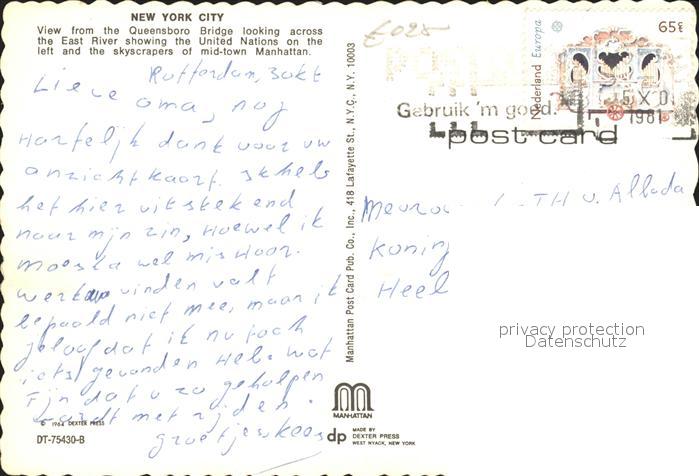 NEW YORK CITY
View from the Queensboro Bridge looking across
the East River showing the United Nations on the
left and the skyscrapers of mid-town Manhattan.
Rotterdam, 3 okt
Lieve oma, nog
Hartelijk dank voor uw
anzichtkaart. Ik heb
het hier uitstekend
naar mijn zin, Hoewel ik
wel mis Hoor.
werk vinden valt
bepaald niet mee, maar ik
geloof dat ik nu toch
iets gevonden Heb. wat
Fijn dat u zo geholpen
wordt met rijden.
groetjes Kees
© 1964 DEXTER PRESS
DT-75430-B
Manhattan Post Card Pub. Co., Inc., 418 Lafayette St., N.Y.C., N.Y. 10003
MANHATTAN
dp
MADE BY
DEXTER PRESS
WEST NYACK, NEW YORK
Gebruik 'm goed.
post card
Nederland Europa
65c
5 X
1981
TH v. Albada
Koning
Heel
privacy protection
Datenschutz